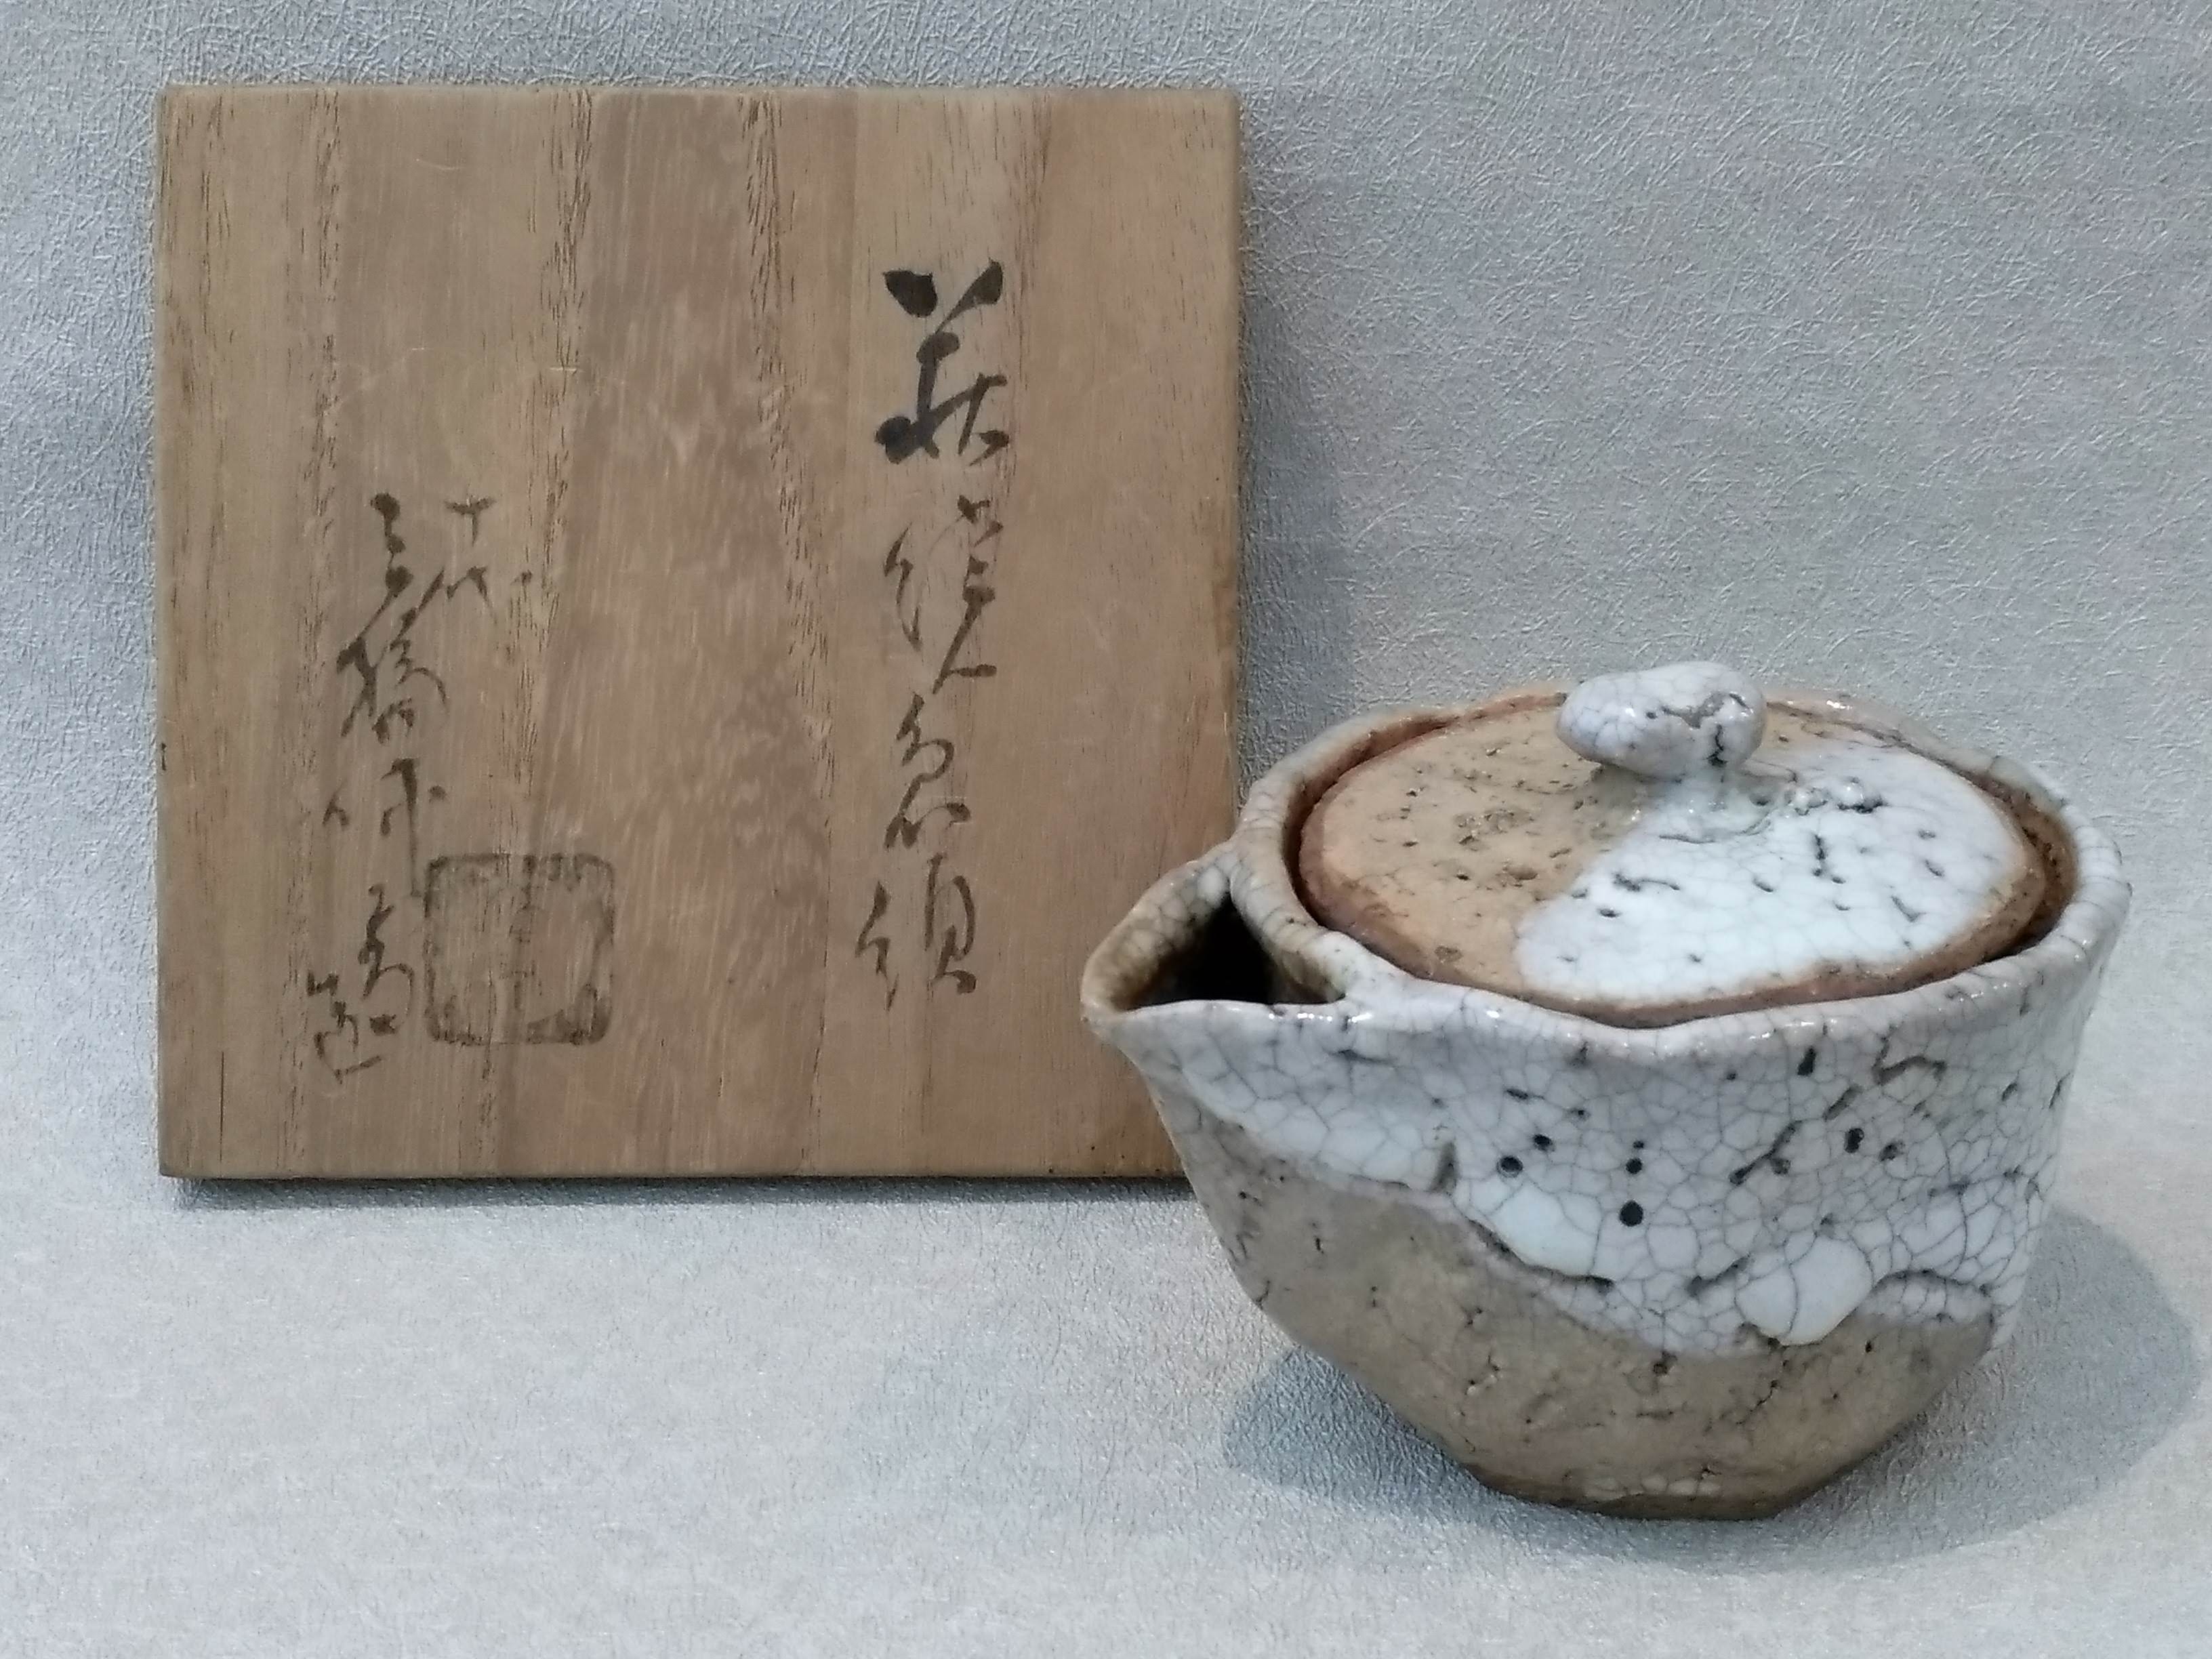 萩焼急須
十代
三輪休雪造